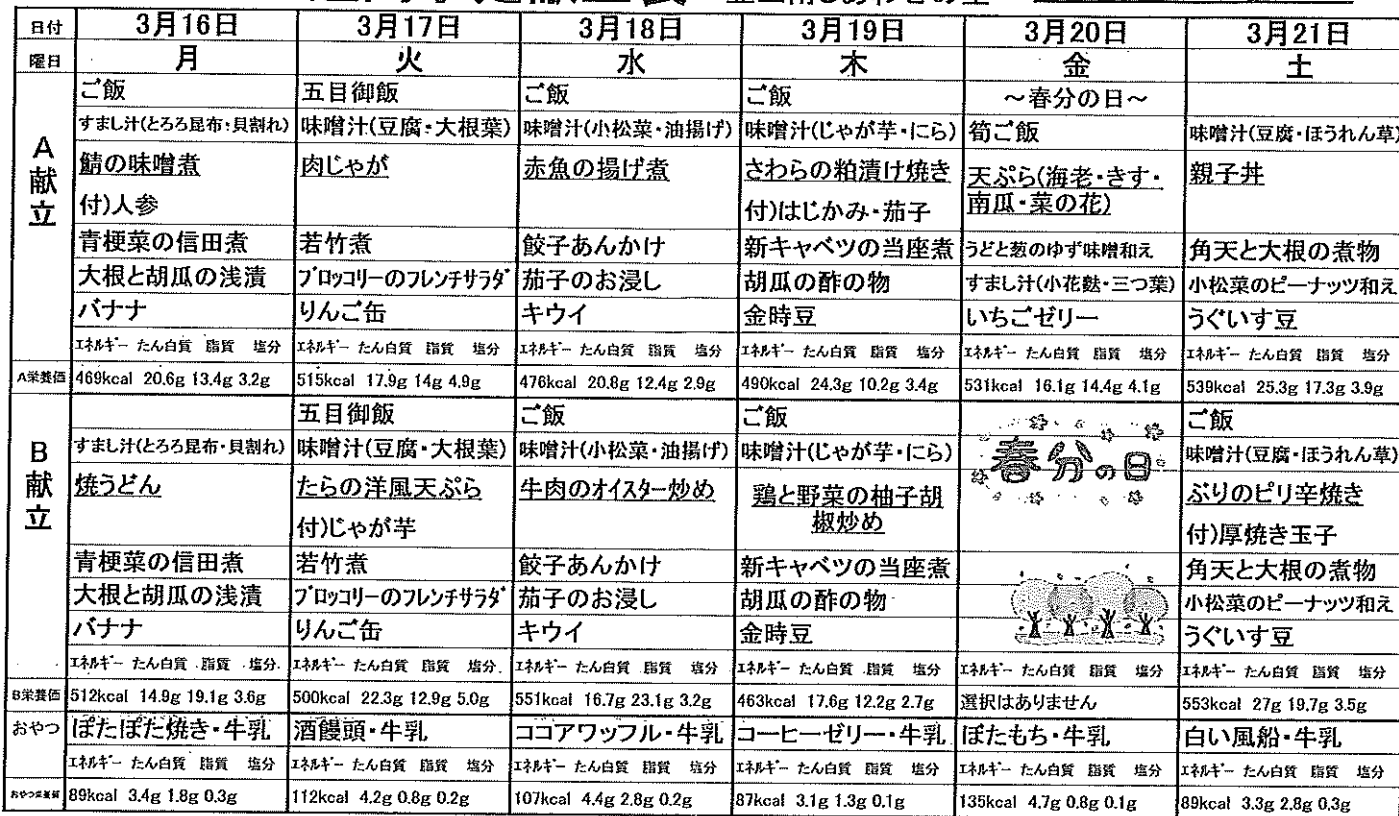 日付 3月16日 3月17日 3月18日 3月19日 3月20日 3月21日
曜日 月 火 水 木 金 土
A献立
ご飯 五目御飯 ご飯 ご飯 ～春分の日～
すまし汁(とろろ昆布・貝割れ) 味噌汁(豆腐・大根葉) 味噌汁(小松菜・油揚げ) 味噌汁(じゃが芋・にら) 筍ご飯 味噌汁(豆腐・ほうれん草)
鯖の味噌煮 肉じゃが 赤魚の揚げ煮 さわらの粕漬け焼き 天ぷら(海老・きす・ 親子丼
付)人参 付)はじかみ・茄子 南瓜・菜の花)
青梗菜の信田煮 若竹煮 餃子あんかけ 新キャベツの当座煮 うどと葱のゆず味噌和え 角天と大根の煮物
大根と胡瓜の浅漬 ブロッコリーのフレンチサラダ 茄子のお浸し 胡瓜の酢の物 すまし汁(小花麩・三つ葉) 小松菜のピーナッツ和え
バナナ りんご缶 キウイ 金時豆 いちごゼリー うぐいす豆
エネルギー たん白質 脂質 塩分 エネルギー たん白質 脂質 塩分 エネルギー たん白質 脂質 塩分 エネルギー たん白質 脂質 塩分 エネルギー たん白質 脂質 塩分 エネルギー たん白質 脂質 塩分
A栄養価 469kcal 20.6g 13.4g 3.2g 515kcal 17.9g 14g 4.9g 476kcal 20.8g 12.4g 2.9g 490kcal 24.3g 10.2g 3.4g 531kcal 16.1g 14.4g 4.1g 539kcal 25.3g 17.3g 3.9g
B献立
五目御飯 ご飯 ご飯 ご飯
すまし汁(とろろ昆布・貝割れ) 味噌汁(豆腐・大根葉) 味噌汁(小松菜・油揚げ) 味噌汁(じゃが芋・にら) 春分の日 味噌汁(豆腐・ほうれん草)
焼うどん たらの洋風天ぷら 牛肉のオイスター炒め 鶏と野菜の柚子胡 ぶりのピリ辛焼き
付)じゃが芋 椒炒め 付)厚焼き玉子
青梗菜の信田煮 若竹煮 餃子あんかけ 新キャベツの当座煮 角天と大根の煮物
大根と胡瓜の浅漬 ブロッコリーのフレンチサラダ 茄子のお浸し 胡瓜の酢の物 小松菜のピーナッツ和え
バナナ りんご缶 キウイ 金時豆 うぐいす豆
エネルギー たん白質 脂質 塩分 エネルギー たん白質 脂質 塩分 エネルギー たん白質 脂質 塩分 エネルギー たん白質 脂質 塩分 エネルギー たん白質 脂質 塩分 エネルギー たん白質 脂質 塩分
B栄養価 512kcal 14.9g 19.1g 3.6g 500kcal 22.3g 12.9g 5.0g 551kcal 16.7g 23.1g 3.2g 463kcal 17.6g 12.2g 2.7g 選択はありません 553kcal 27g 19.7g 3.5g
おやつ ぽたぽた焼き・牛乳 酒饅頭・牛乳 ココアワッフル・牛乳 コーヒーゼリー・牛乳 ぼたもち・牛乳 白い風船・牛乳
エネルギー たん白質 脂質 塩分 エネルギー たん白質 脂質 塩分 エネルギー たん白質 脂質 塩分 エネルギー たん白質 脂質 塩分 エネルギー たん白質 脂質 塩分 エネルギー たん白質 脂質 塩分
89kcal 3.4g 1.8g 0.3g 112kcal 4.2g 0.8g 0.2g 107kcal 4.4g 2.8g 0.2g 87kcal 3.1g 1.3g 0.1g 135kcal 4.7g 0.8g 0.1g 89kcal 3.3g 2.8g 0.3g